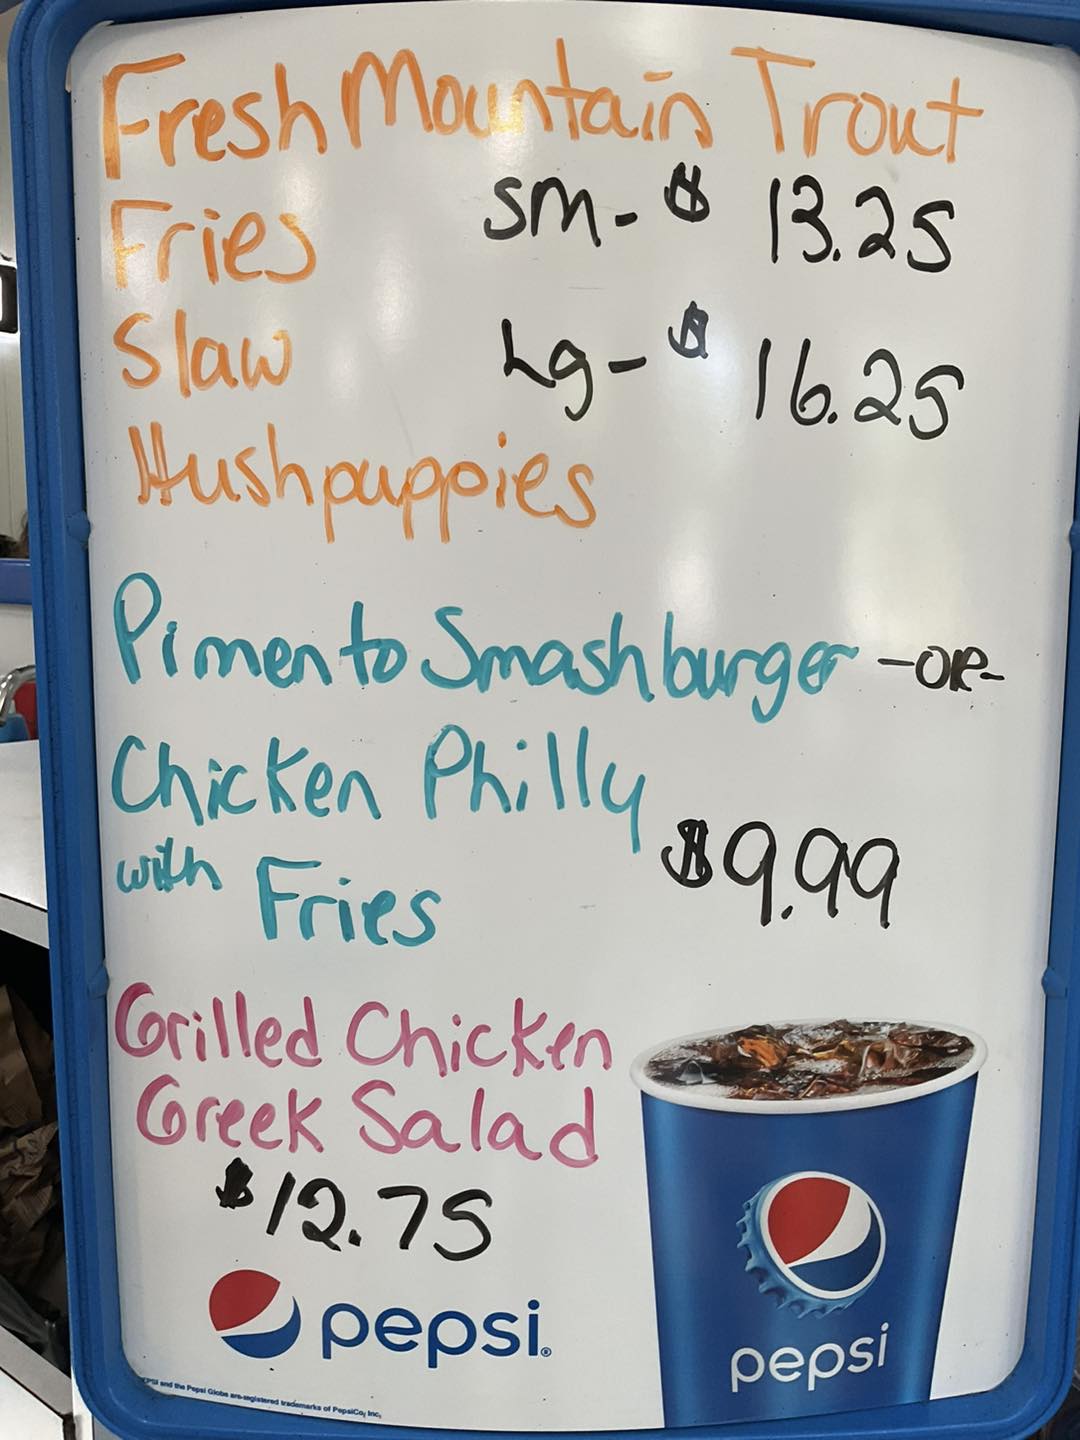 Fresh Mountain Trout
Fries sm- $ 13.25
Slaw Lg- $ 16.25
Hushpuppies
Pimento Smashburger -OR-
Chicken Philly
with Fries $9.99
Grilled Chicken
Greek Salad
$12.75
pepsi®
pepsi
PEPSI and the Pepsi Globe are registered trademarks of PepsiCo, Inc.